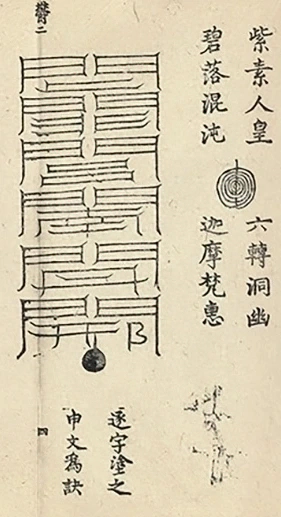 紫素人皇 六轉洞幽
碧落混沌 迦摩梵惠
逐字塗之
申文為訣
四